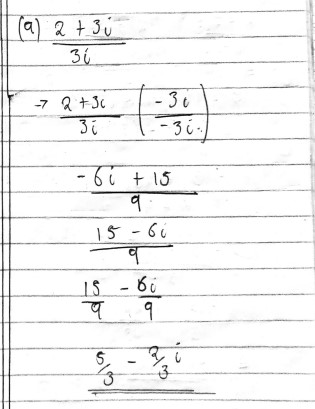 (a) 2 + 3i / 3i
→ 2+3i / 3i ( -3i / -3i )
-6i + 15 / 9
15 - 6i / 9
15/9 - 6i/9
5/3 - 2/3 i